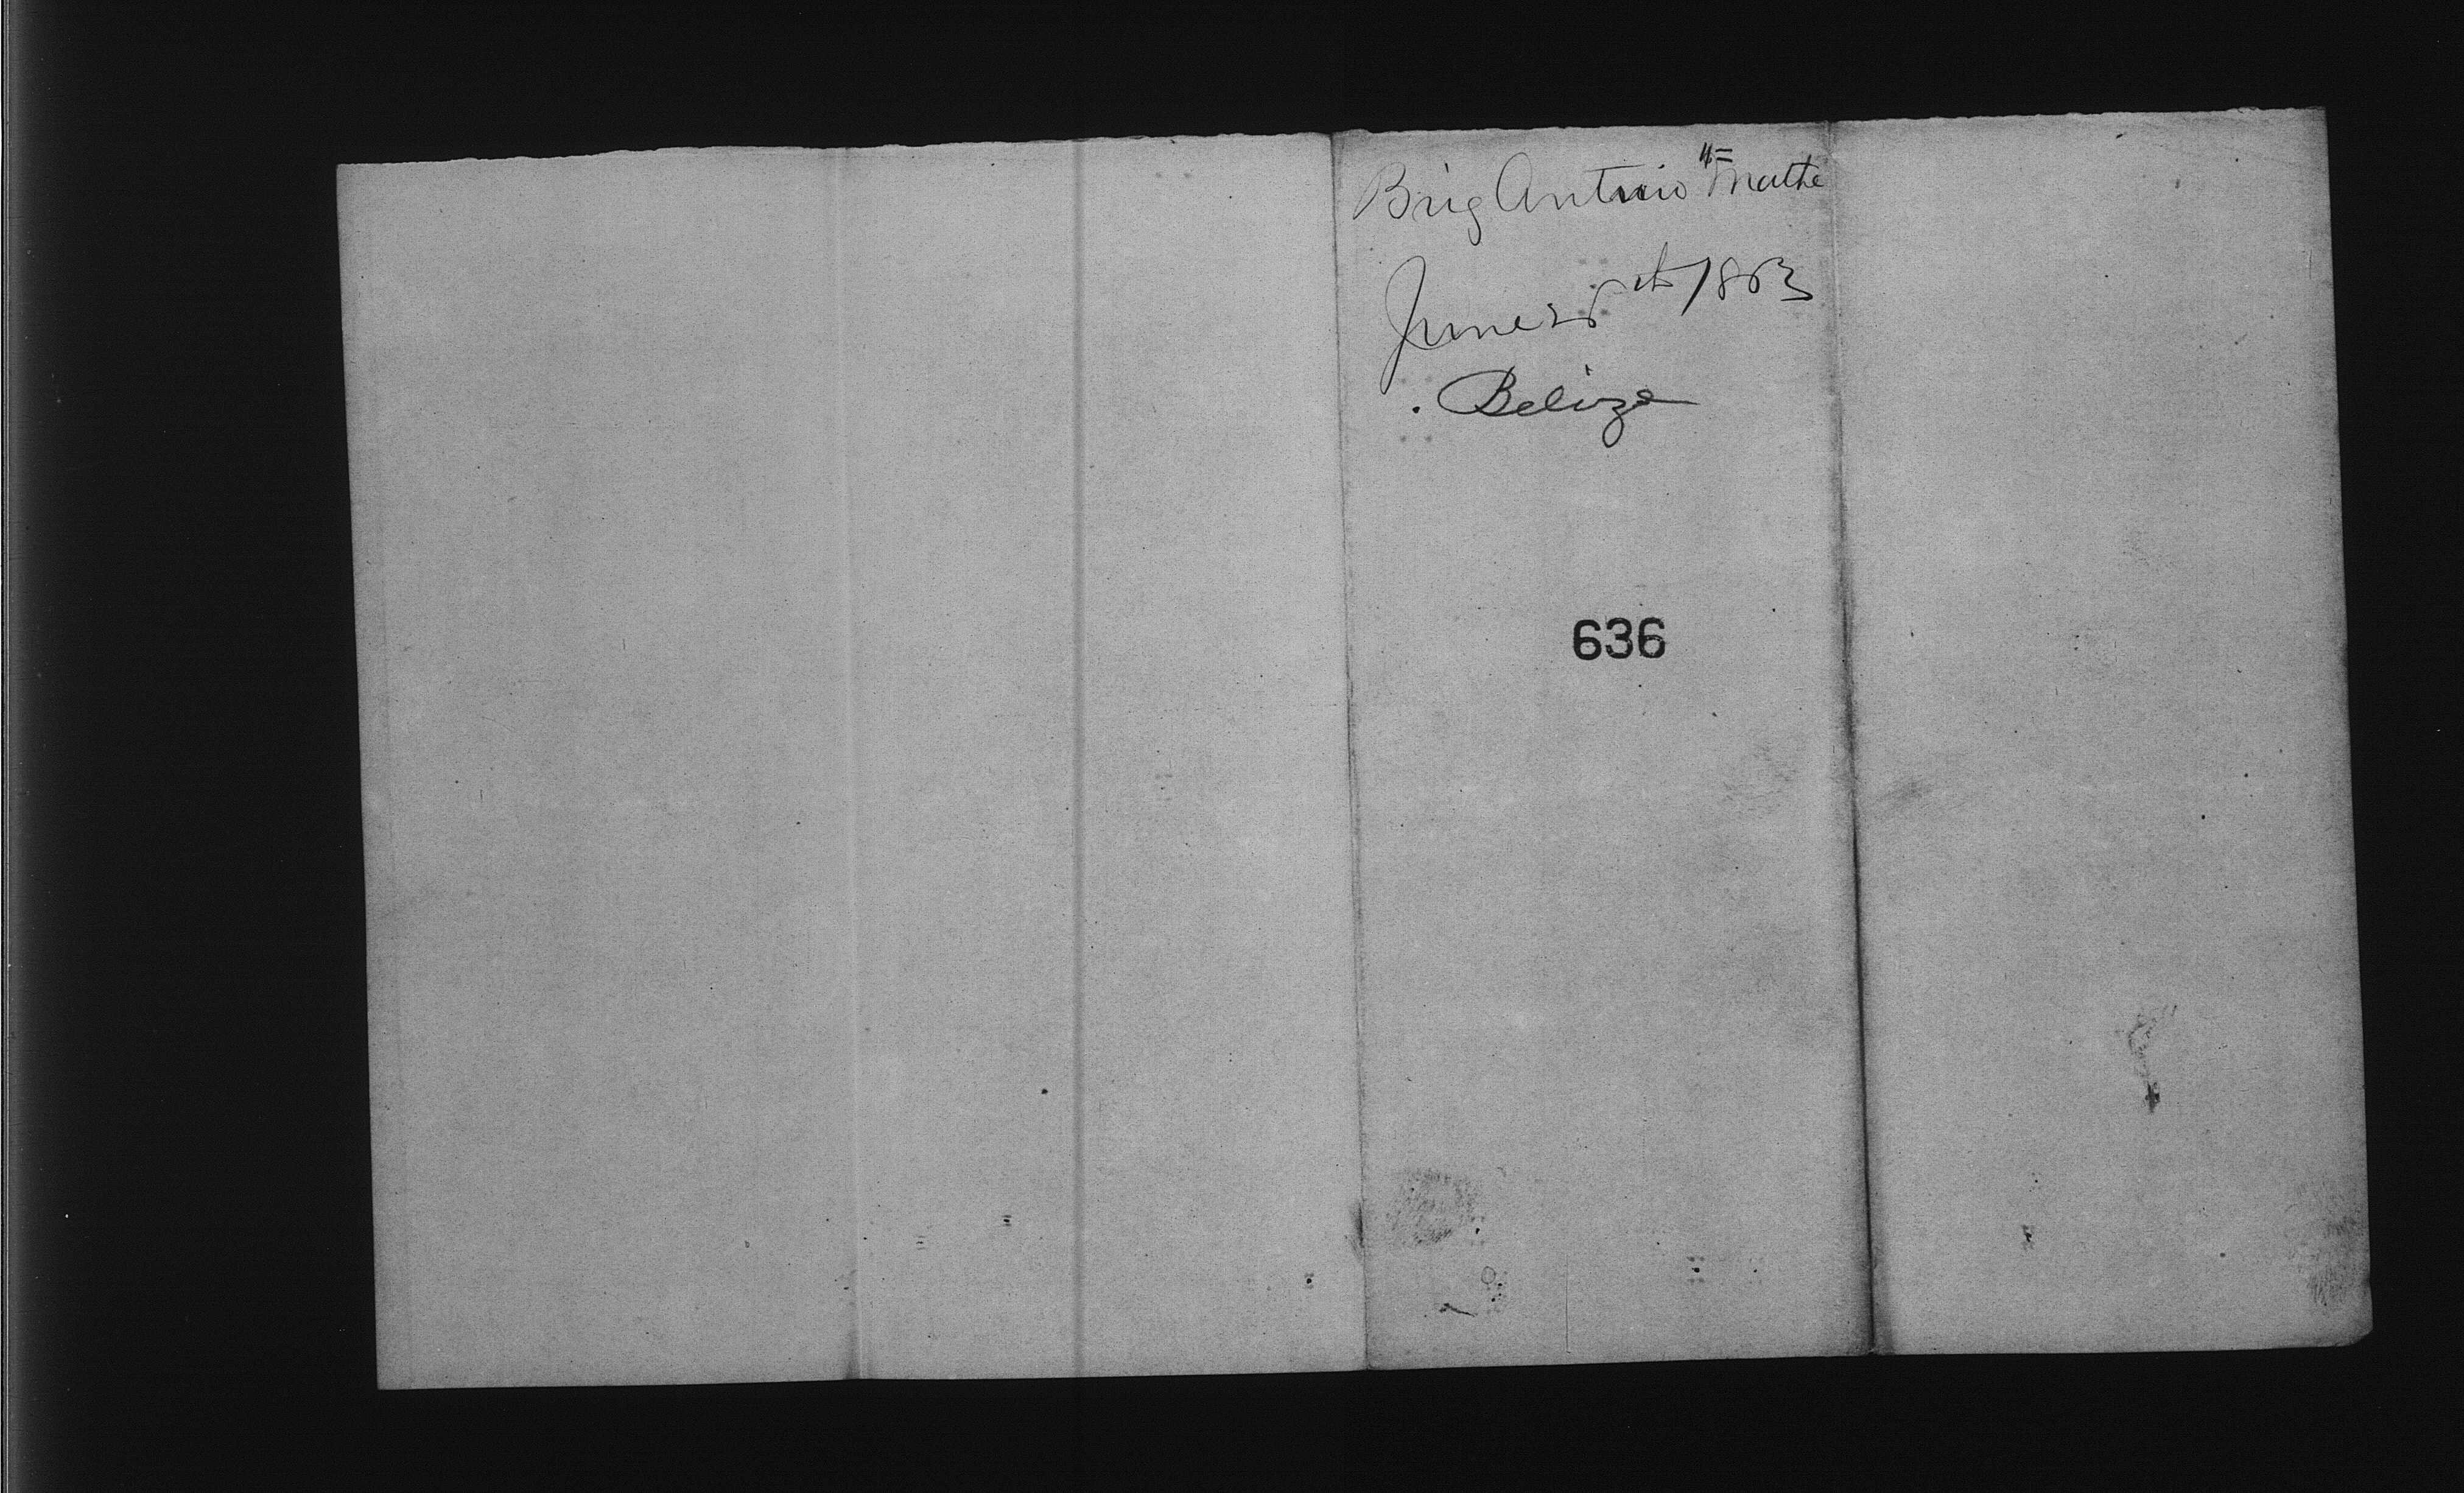 Brig Antonio Mathe
June 25th 1863
Belize
636